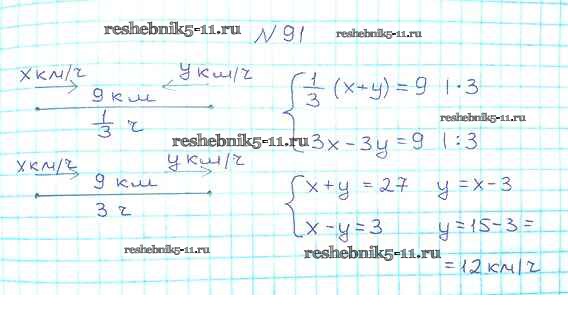 reshebnik5-11.ru
№91
reshebnik5-11.ru
x км/ч
y км/ч
9 км
1/3 ч
{ 1/3 (x+y) = 9 | · 3
reshebnik5-11.ru
3x - 3y = 9 | : 3
reshebnik5-11.ru
x км/ч
y км/ч
9 км
3 ч
{ x + y = 27 y = x - 3
x - y = 3 y = 15 - 3 =
= 12 км/ч
reshebnik5-11.ru
reshebnik5-11.ru
reshebnik5-11.ru